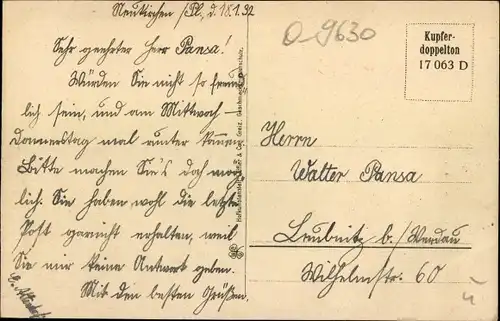 Neukirchen /Pl., d. 18.1.32
Sehr geehrter Herr Pansa!
Würden Sie nicht so freund
lich sein, und am Mittwoch –
Donnerstag mal runter kommen.
Bitte machen Sie's doch mög
lich. Sie haben wohl die letzte
Post garnicht erhalten, weil
Sie mir keine Antwort geben.
Mit den besten Grüßen
O-9630
Kupfer-
doppelton
17 063 D
Herrn
Walter Pansa
Leubnitz b./Werdau
Wilhelmstr. 60